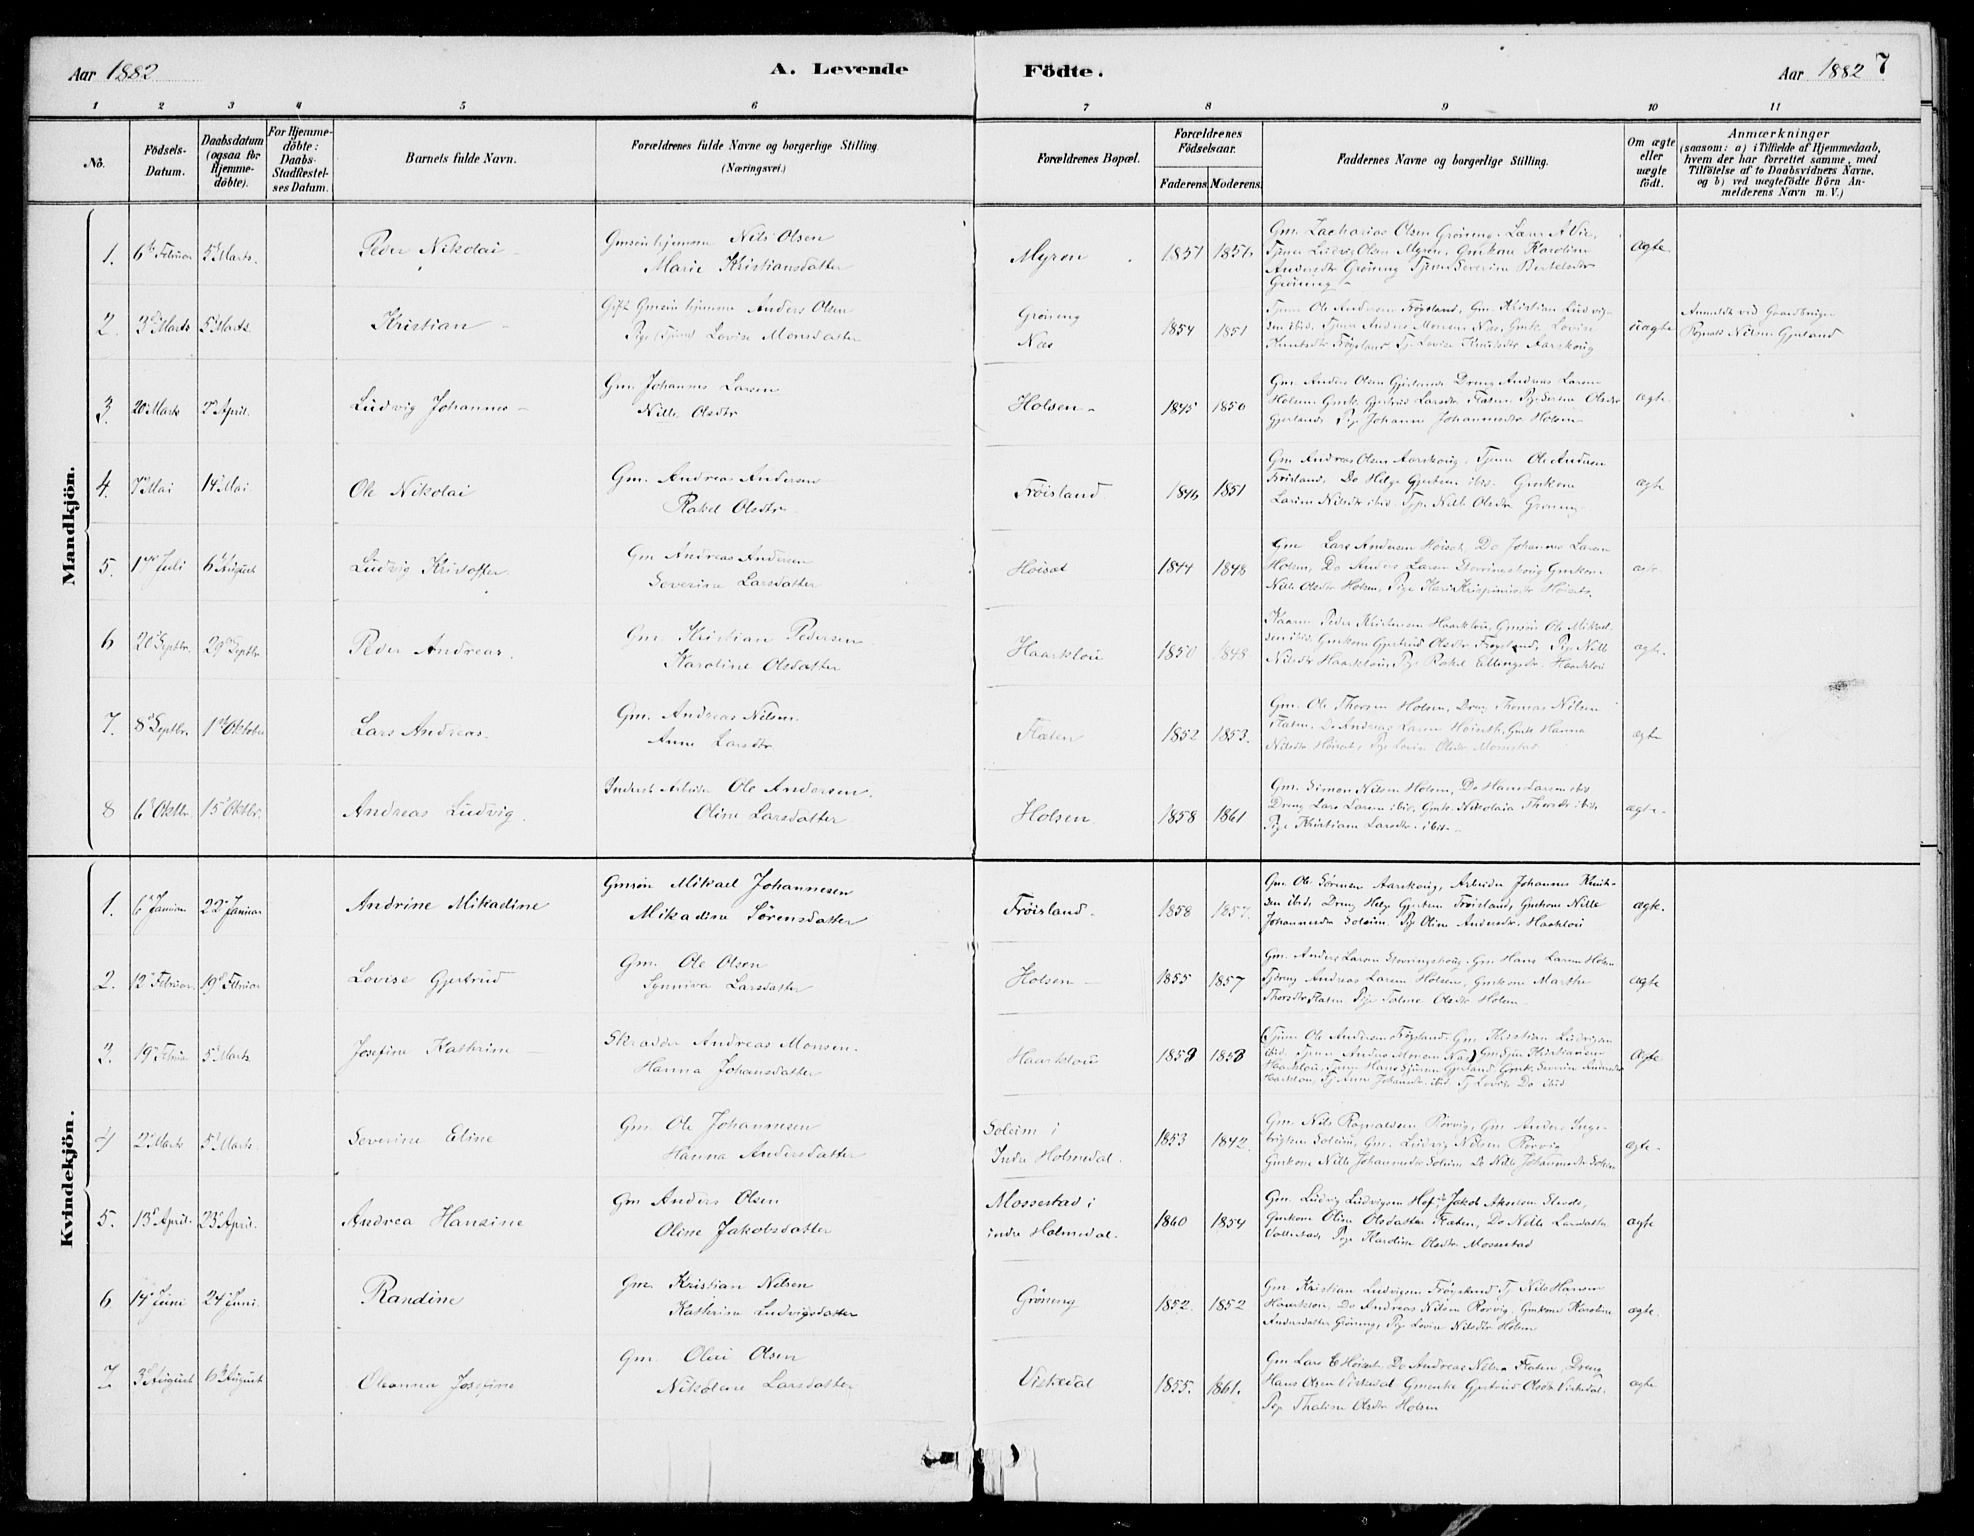 Aar 1882 A. Levende Födte. Aar 1882 7
1 2 3 4 5 6 7 8 9 10 11
No. Födsels-Datum. Daabsdatum (ogsaa for Hjemme-döbte). For Hjemme-döbte: Daabs-Stadfæstel-ses Datum. Barnets fulde Navn. Forældrenes fulde Navne og borgerlige Stilling. (Næringsvei.) Forældrenes Bopæl. Forældrenes Födselsaar. Faderens. Moderens. Faddernes Navne og borgerlige Stilling. Om ægte eller uægte födt. Anmærkninger (saasom: a) i Tilfælde af Hjemmedaab, hvem der har forrettet samme, med Tilföielse af to Daabsvidners Navne, og b) ved uægtefödte Börn An-melderens Navn m. V.)
Mandkjön.
1. 6te Februar 5te Marts. Peder Nikolai Gmsön hjemme Nils Olsen
Marie Kristiansdatter Myren 1851 Gm. Zacharias Olsen Gröning,
Tjener Ludvig Olsen Myren, Gmkone Karoline
Andersdtr Gröning Severine Bertelsdtr
Gröning ægte
2. 3de Marts 5te Marts. Kristian Gift Gmsön hjemme Anders Olsen
Pige Lovise Monsdatter Gröning
Nes 1854 1851 Tjener Ole Andersen Fröysland, Gm. Kristian Ludvig-
sen ibid, Tjener Anders Monsen Nes, Gmk. Lovise
Knutsdtr Fröysland, Lovise Knutsdtr Aarskoug uægte Anmeldt ved Gaardbruger
Nilsen Gjerland
3. 20de Marts April. Ludvig Johannes Gm. Johannes Larsen
Nille Olsdtr Holsen 1845 1850 Gm. Anders Olsen Gjerland, Dreng Andreas Larsen
Holsen, Gmk. Gjertrud Larsdtr Flaten Pige Serena Olsdtr
Gjerland, Pige Johanne Johannesdtr Holsen ægte
4. 7de Mai 14de Mai Ole Nikolai Gm. Andreas Andersen
Rakel Olsdtr Fröisland 1846 1851 Gm Andreas Olsen Aarskoug, Tjener Ole Andersen
Fröisland, Do Helge Gjertsen ibid. Gmkone
Larine Nilsdtr ibid. Nille Olsdtr Gröning ægte
5. 1ste Juli 6te August Ludvig Kristoffer Gm Andreas Andersen
Severine Larsdatter Höiset 1844 1848 Gm Lars Andersen Höiset, Do Johannes Larsen
Holsen, Do Anders Larsen Storringsboug Gmkone
Nille Olsdtr Holsen, Pige Kari Krispinusdtr Höiset.
6 20de Septbr. 29de Septbr. Peder Andreas. Gm. Kristian Pedersen
Karoline Olsdatter Haarklou 1850 1848 Kaarm Peder Kristensen Haarklou, Gmsön Ole Mikael-
sen ibid, Gmkone Gjertrud Olsdtr Fröysland, Pige Nille
Nilsdtr Haarklou, Pige Rakel Ellingsdtr. Haarklou ægte.
7. 8de Septbr. 1ste Oktober Lars Andreas. Gm. Andreas Nilsen.
Anne Larsdtr Flaten 1852 1853. Gm. Ole Thorsen Holsen, Dreng Thomas Nilsen
Flaten, Do Andreas Larsen Höiseth, Gmk Hanna
Nilsdtr Höiset, Pige Lovise Olsdtr Mossestad ægte
8 6te Oktbr. 15de Oktbr. Andreas Ludvig. Inderst Arbeider Ole Andersen.
Oline Larsdatter Holsen 1858 1861 Gm. Simon Nilsen Holsen, Do Hans Larsen ibid
Dreng Lars Larsen ibid, Gmk. Nikolaia Thorsdtr ibid
Pige Kristiane Larsdtr. ibid. ægte.
Kvindekjön.
1. 6te Januar 22de Januar Andrine Mikadine Gmsön Mikael Johannesen
Mikadine Sörensdatter Fröisland. 1858 1857. Gm. Ole Sörensen Aarskoug, Arbeider Johannes Knut-
sen ibid. Dreng Helge Gjertsen Fröisland, Gmkone Nille
Johannesdtr Soleim. Pige Oline Andersdtr. Haarklou ægte.
2. 12te Februar. 19de Februar Lovise Gjertrud Gm. Ole Olsen
Synniva Larsdatter Holsen 1855 1857 Gm. Anders Larsen Storringsboug. Gm Hans Larsen Holsen
Andreas Larsen Holsen, Gmkone Marthe
Thorsdtr Flaten Pige Oline Olsdtr Holsen ægte
3. 19de Februar 5te Marts Josefine Kathrine Skrædder Andreas Monsen.
Hanna Johansdatter Haarklou 1859 1858 (Tjener Ole Andersen Fröysland. Gm Kristian Ludvigsen
ibid. Tjener Anders Monsen Nes) Kristiansen
Haarklou, Hans Gjerland Gmk. Severine Andersdtr
Haarklou, Anne Johansdtr. ibid. Tj Lovise Do ibid ægte
4 2den Marts 5te Marts. Severine Eline Gm. Ole Johannesen
Hanna Andersdatter Soleim i
Indre Holmedal. 1853 1842. Gm. Nils Rognaldsen Rörvig, Gm Anders Inge-
brigtsen Soleim, Gm. Ludvig Nilsen Rörvig
Gmkone Nille Johannesdtr Soleim Do Nille Johannesdtr Soleim ægte.
5. 13de April. 23de April. Andrea Hansine Gm Anders Olsen
Oline Jakobsdatter Mossestad i
indre Holmedal. 1860 1854 Gm. Ludvig Ludvigsen Hof, Jakob Akselsen
Gmkone Oline Olsdatter Flaten, Do Nille Larsdatter
Pige Karoline Olsdtr Mossestad ægte
6 14de Juni 24de Juni. Randine Gm. Kristian Nilsen
Kathrine Ludvigsdatter Gröning 1852. 1852 Gm Kristian Ludvigsen Fröysland Tj Nils Hansen
Haarklou, Do Andreas Nilsen Rörvig. Gmkone Karoline
Andersdatter Gröning, Pige Lovise Nilsdtr Holsen ægte.
7 3de August 6te August Oleanna Josefine Gm. Olai Olsen
Nikoline Larsdatter Viskedal 1855. 1861. Gm Lars E Höiset, Do Andreas Nilsen Flaten, Dreng
Hans Olsen Viskedal Gjertrud Olsdtr Viskedal.
Pige Thaline Olsdtr Holsen ægte